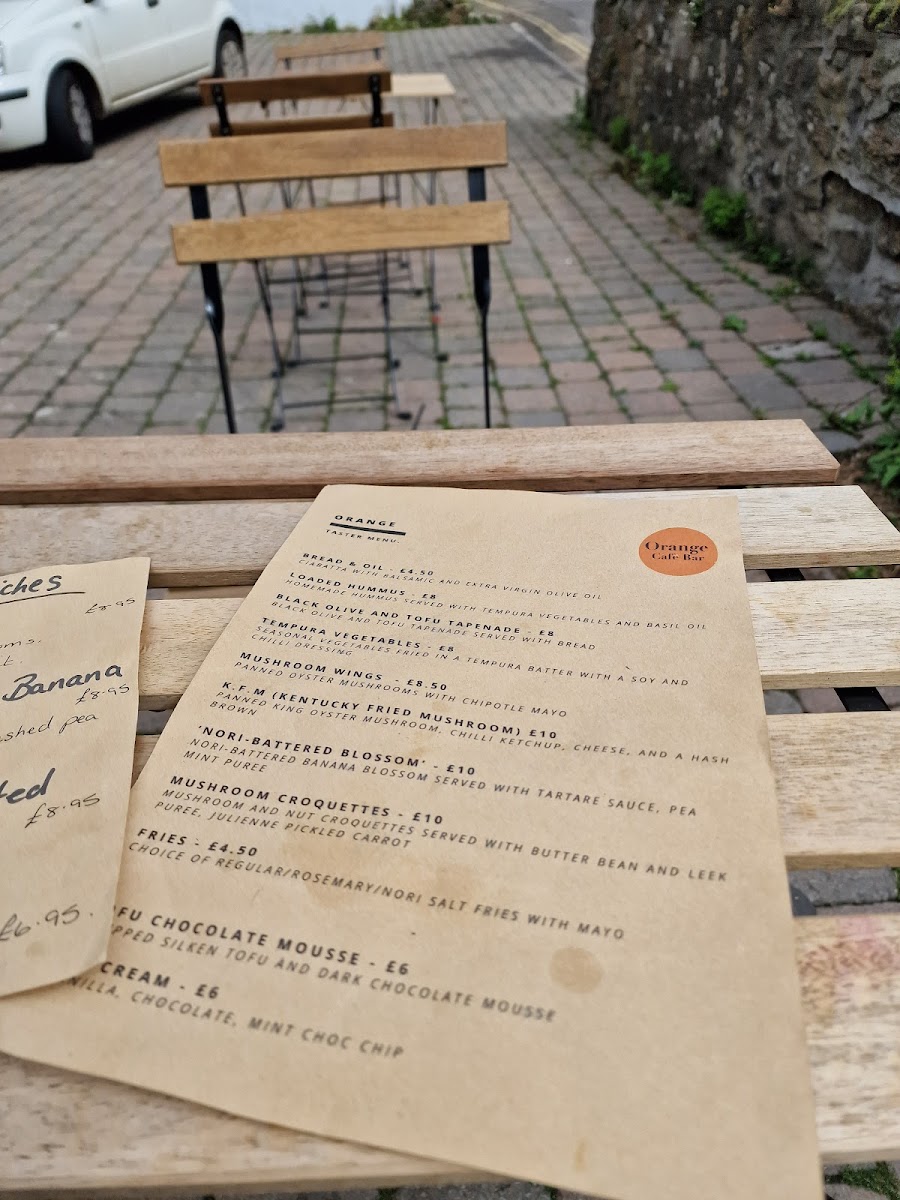 ORANGE
TASTER MENU.
Orange
Cafe Bar
BREAD & OIL - £4.50
CIABATTA WITH BALSAMIC AND EXTRA VIRGIN OLIVE OIL
LOADED HUMMUS - £8
HOMEMADE HUMMUS SERVED WITH TEMPURA VEGETABLES AND BASIL OIL
BLACK OLIVE AND TOFU TAPENADE - £8
BLACK OLIVE AND TOFU TAPENADE SERVED WITH BREAD
TEMPURA VEGETABLES - £8
SEASONAL VEGETABLES FRIED IN A TEMPURA BATTER WITH A SOY AND
CHILLI DRESSING
MUSHROOM WINGS - £8.50
PANNED OYSTER MUSHROOMS WITH CHIPOTLE MAYO
K.F.M (KENTUCKY FRIED MUSHROOM) £10
PANNED KING OYSTER MUSHROOM, CHILLI KETCHUP, CHEESE, AND A HASH
BROWN
'NORI-BATTERED BLOSSOM' - £10
NORI-BATTERED BANANA BLOSSOM SERVED WITH TARTARE SAUCE, PEA
MINT PUREE
MUSHROOM CROQUETTES - £10
MUSHROOM AND NUT CROQUETTES SERVED WITH BUTTER BEAN AND LEEK
PUREE, JULIENNE PICKLED CARROT
FRIES - £4.50
CHOICE OF REGULAR/ROSEMARY/NORI SALT FRIES WITH MAYO
FU CHOCOLATE MOUSSE - £6
PPED SILKEN TOFU AND DARK CHOCOLATE MOUSSE
CREAM - £6
NILLA, CHOCOLATE, MINT CHOC CHIP
iches
£8.95
oms.
t.
Banana
£8.95
shed pea
ted
£8.95
£6.95.